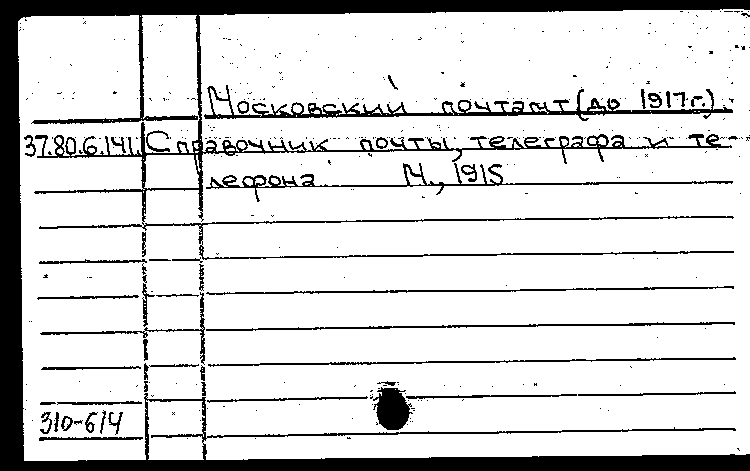 Московский почтамт (до 1917 г.).
37.80.6.141. Справочник почты, телеграфа и те-
лефона М., 1915
310-614